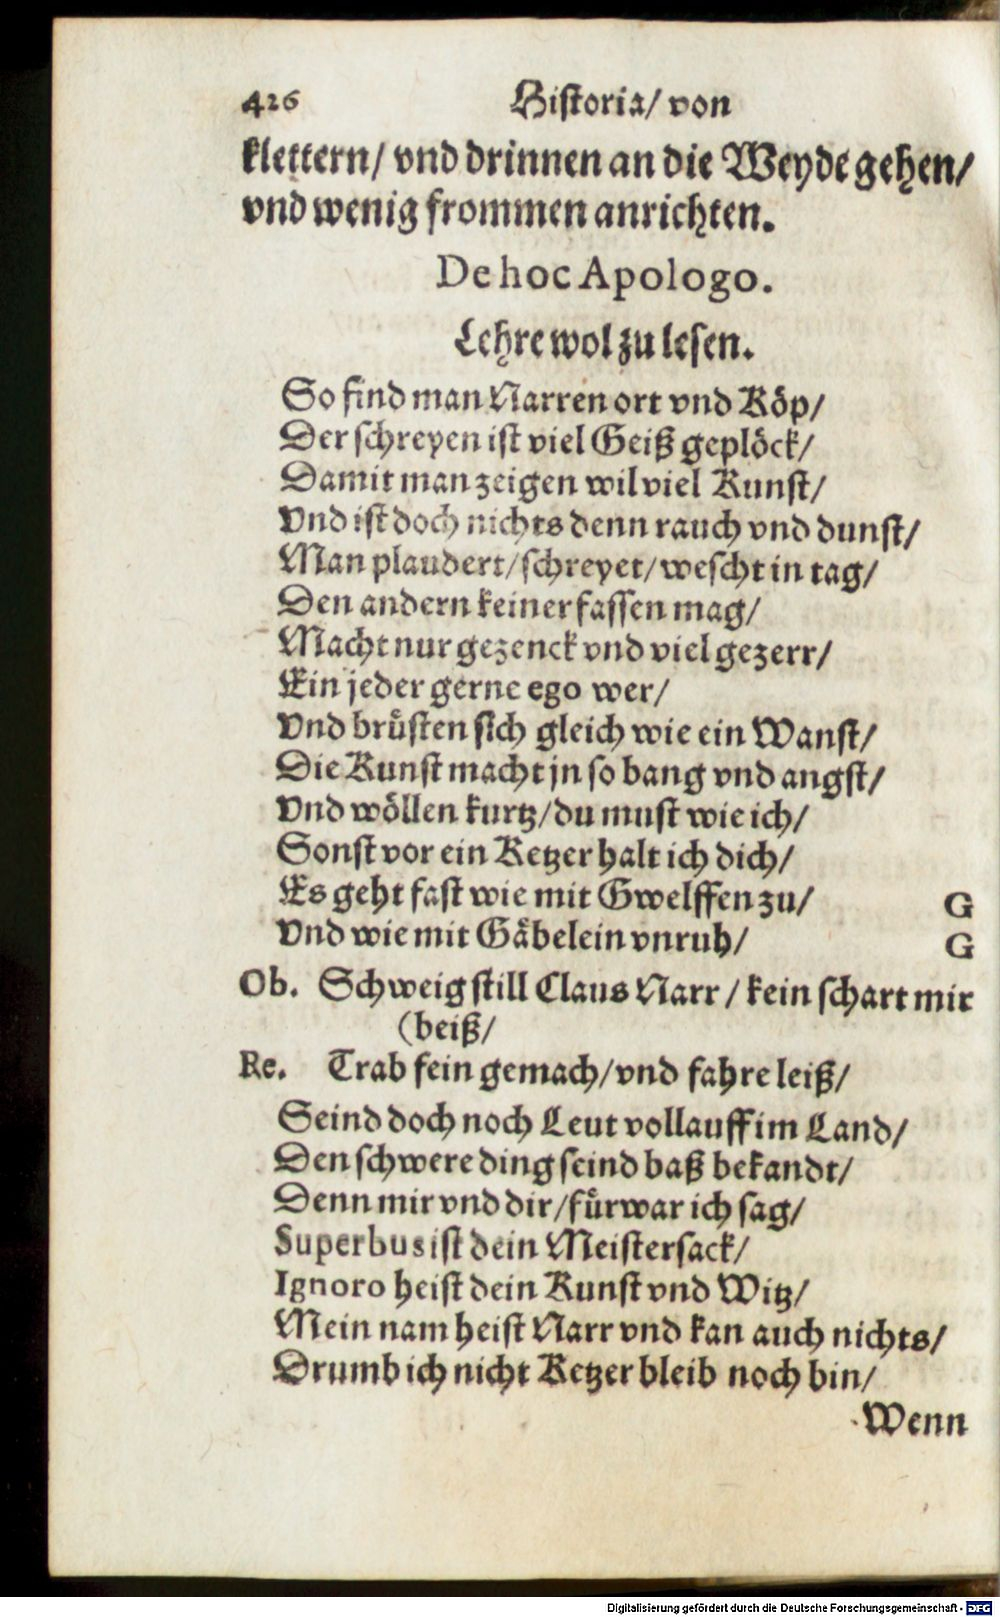 426 Historia/ von
klettern/ vnd drinnen an die Weyde gehen/
vnd wenig frommen anrichten.
De hoc Apologo.
Lehre wol zu lesen.
So find man Narren ort vnd Köp/
Der schreyen ist viel Geiß geplöck/
Damit man zeigen wil viel Kunst/
Vnd ist doch nichts denn rauch vnd dunst/
Man plaudert/schreyet/wescht in tag/
Den andern keiner fassen mag/
Macht nur gezenck vnd viel gezerr/
Ein jeder gerne ego wer/
Vnd brüsten sich gleich wie ein Wanst/
Die Kunst macht jn so bang vnd angst/
Vnd wöllen kurtz/du must wie ich/
Sonst vor ein Ketzer halt ich dich/
Es geht fast wie mit Gwelffen zu/ G
Vnd wie mit Gäbelein vnruh/ G
Ob. Schweig still Claus Narr/ kein schart mir
(beiß/
Re. Trab fein gemach/vnd fahre leiß/
Seind doch noch Leut vollauff im Land/
Den schwere ding seind baß bekandt/
Denn mir vnd dir/fürwar ich sag/
Superbus ist dein Meistersack/
Ignoro heist dein Kunst vnd Witz/
Mein nam heist Narr vnd kan auch nichts/
Drumb ich nicht Ketzer bleib noch bin/
Wenn
Digitalisierung gefördert durch die Deutsche Forschungsgemeinschaft - DFG